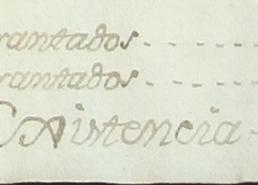 rantados - - - -
rantados - - - -
Existencia -